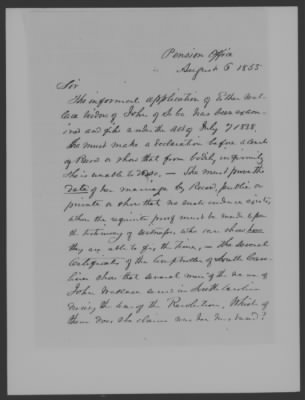 Pension Office
August 6 1855
Sir
The informal application of Esther Wal-
lace widow of John of S. Ca. has been exam-
ined and filed under the Act of July 7/1838.
She must make a declaration before a Court
of Record or show that from bodily infirmity
She is unable to do so. — She must prove the
date of her marriage by Record, public or
private or show that no such evidence exists,
when the requisite proof must be made upon
the testimony of witnesses who can show how
they are able to fix the time, — The several
Certificates of the Comptroller of South Caro-
lina show that several men of the name of
John Wallace served in South Carolina
during the War of the Revolution, Which of
them does she claim was her husband?